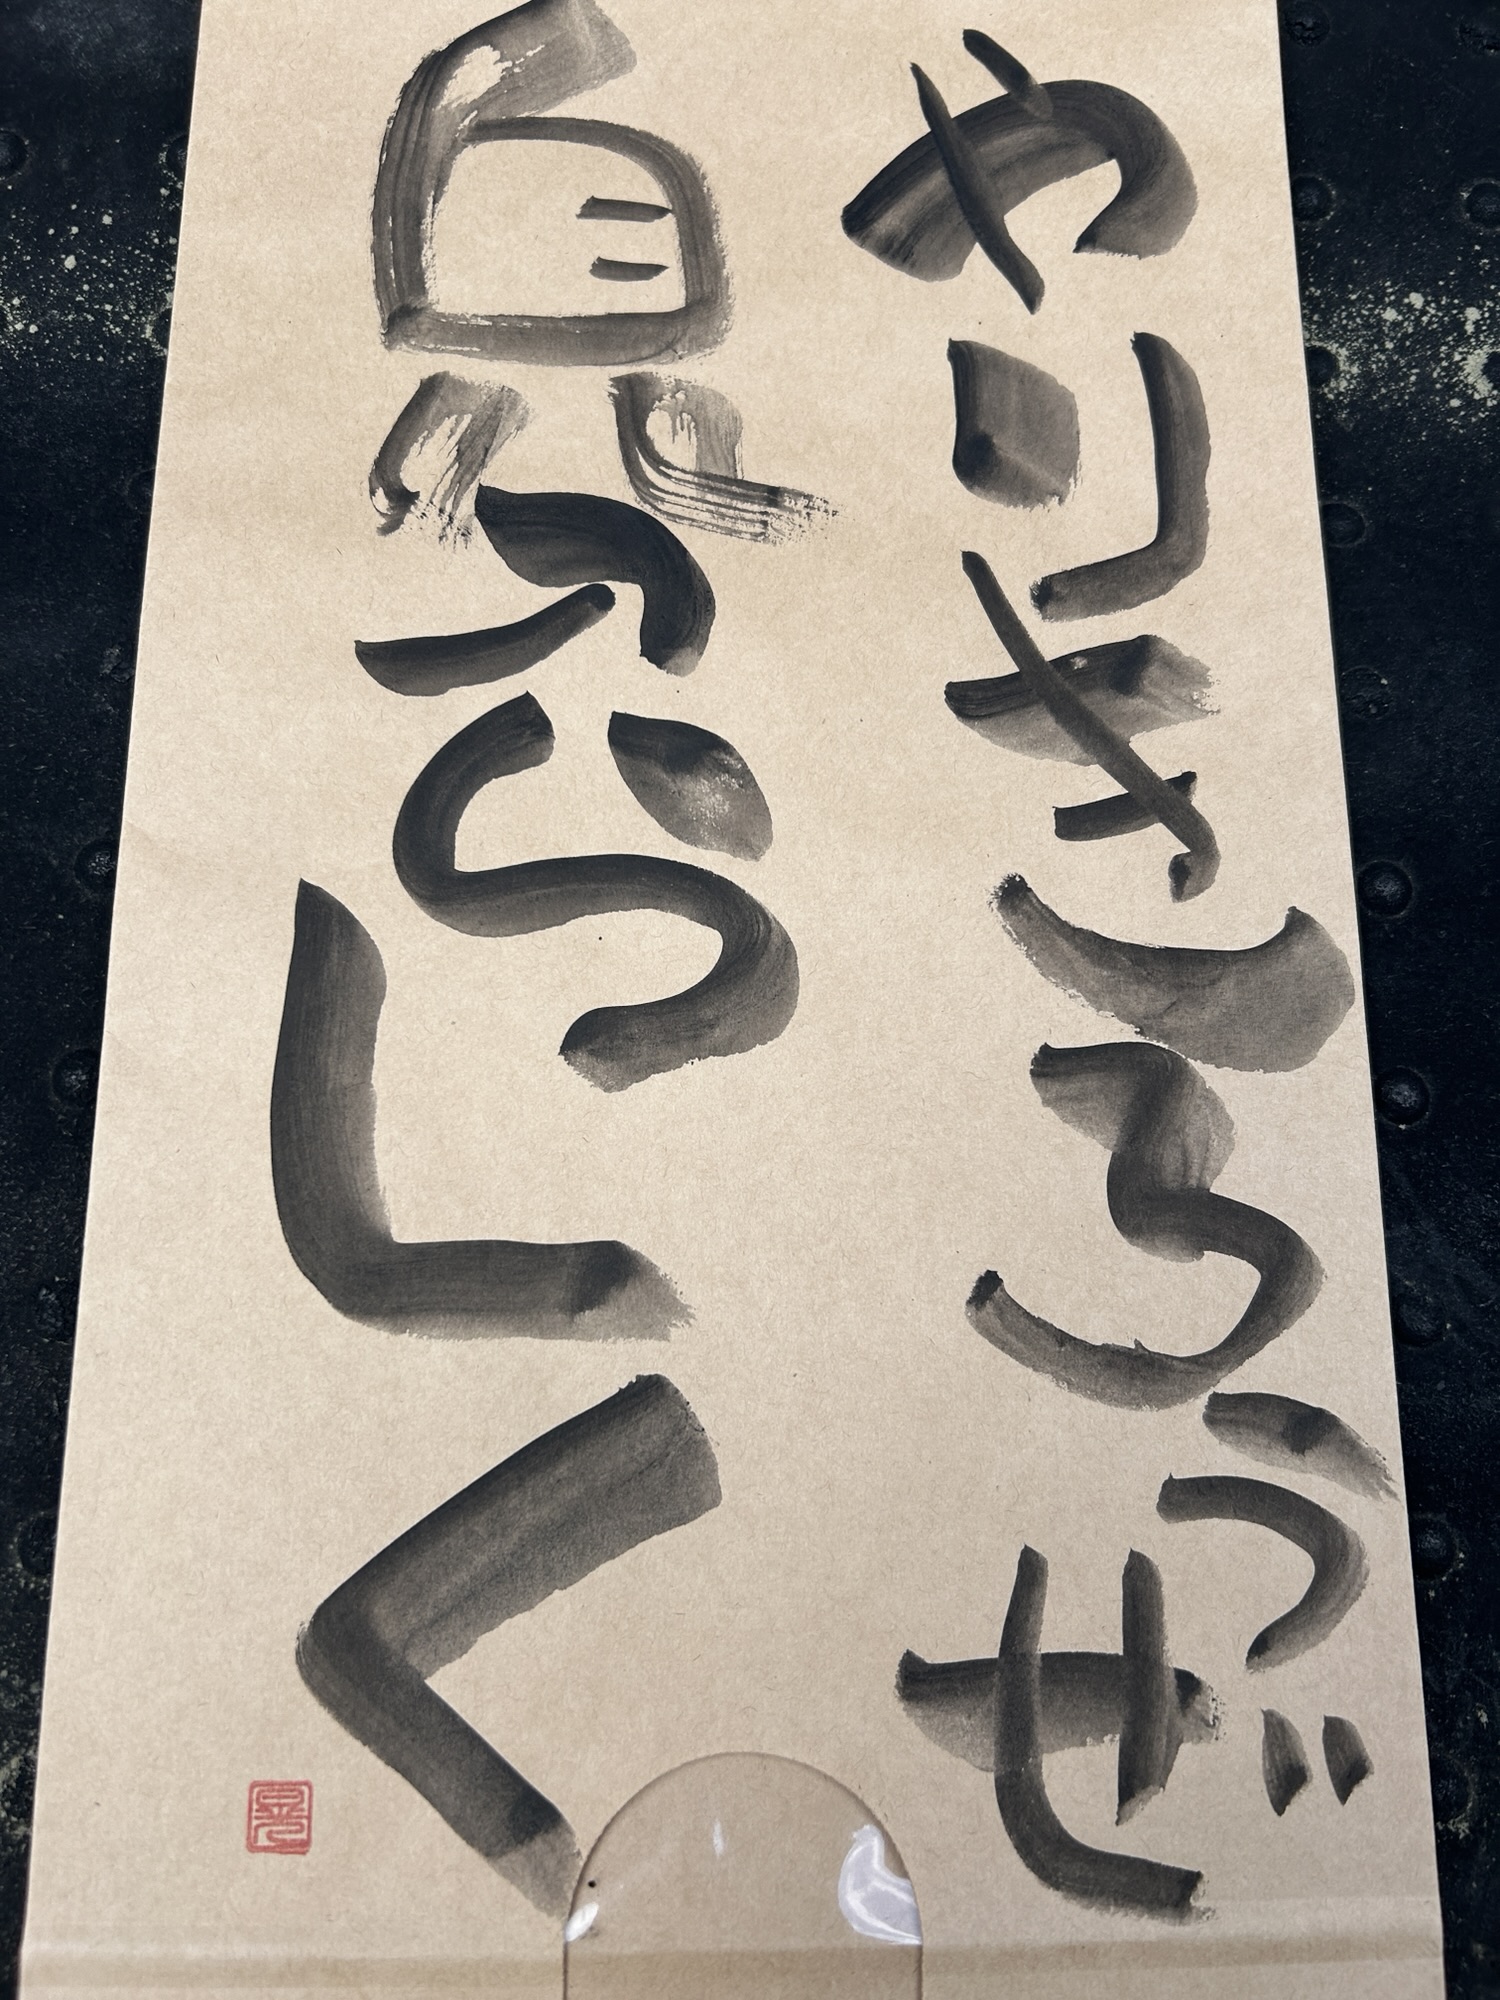 やりきろうぜ
自分らしく